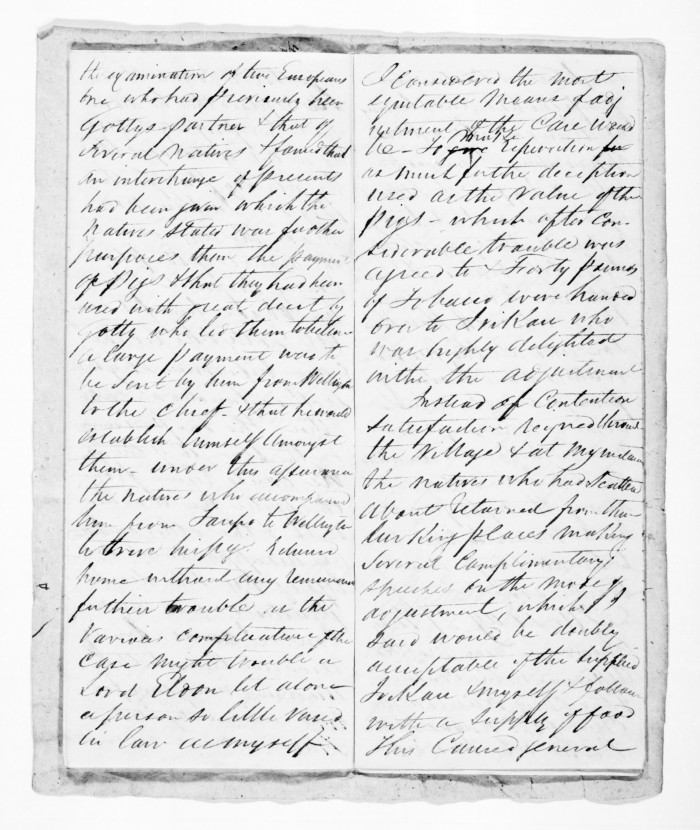 the examination of two Europeans
one who had previously been
Gottys partner & that of
several Natives & found that
an interchange of presents
had been given which the
Natives stated was for other
purposes then the payment
of Pigs & that they had been
used with great deceit by
Gotty who led them to believe
a large payment was to
be sent by him from Wellington
to the Chief - & that he would
establish himself amongst
them - under this assurance
the natives who accompanied
him from Taupo to Wellington
to drive his pigs. Returned
home without any remuneration
for their trouble as the
Various complications of the
Case might trouble a
Lord Eldon let alone
a person so little versed
in law as myself
I considered the most
equitable means of adj
ustment of the Case would
be - to give Reparation for
as much for the deception
used as the value of the
Pigs - which after Con-
siderable trouble was
agreed to & Forty Pounds
of Tobacco were handed
over to Iwikau who
was highly delighted
with the adjustment
Instead of Contention
Satisfaction reigned throu
the Village & at my
the natives who had scattered
About returned from their
lurking places making
Several Complimentary
speeches on the mode of
adjustment, which I
said would be doubly
acceptable if the supplied
Iwikau & myself & follow
with a supply of food
This Caused general